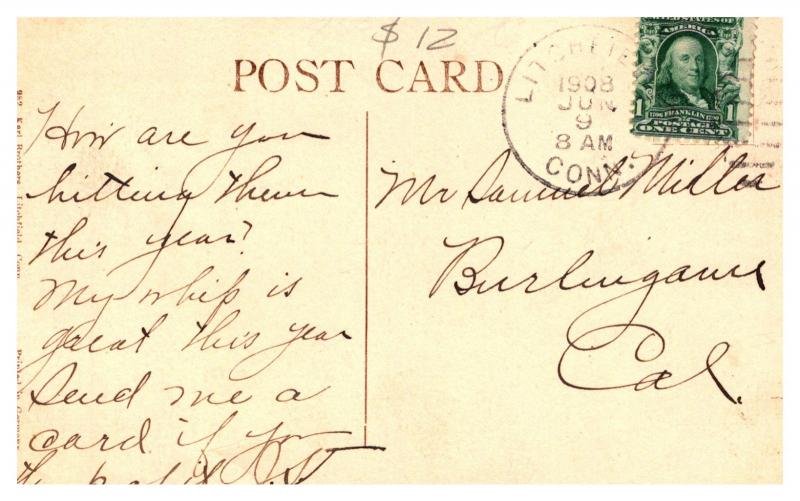 $ 12
POST CARD
LITCHFIE
1908
JUN
9
8 AM
CONN.
UNITED STATES OF
AMERICA
1 FRANKLIN 1
POSTAGE
ONE CENT
How are you
hitting them
this year?
My whip is
great this year
Send me a
card if you
Mr Samuel Miller
Burlingame
Cal.
Karl Brothers, Litchfield, Conn.
Printed in Germany